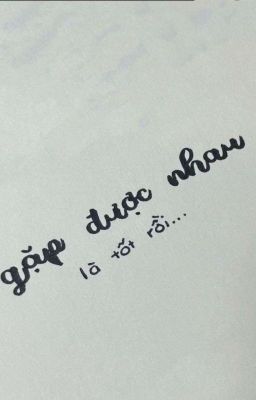 gặp được nhau
là tốt rồi...